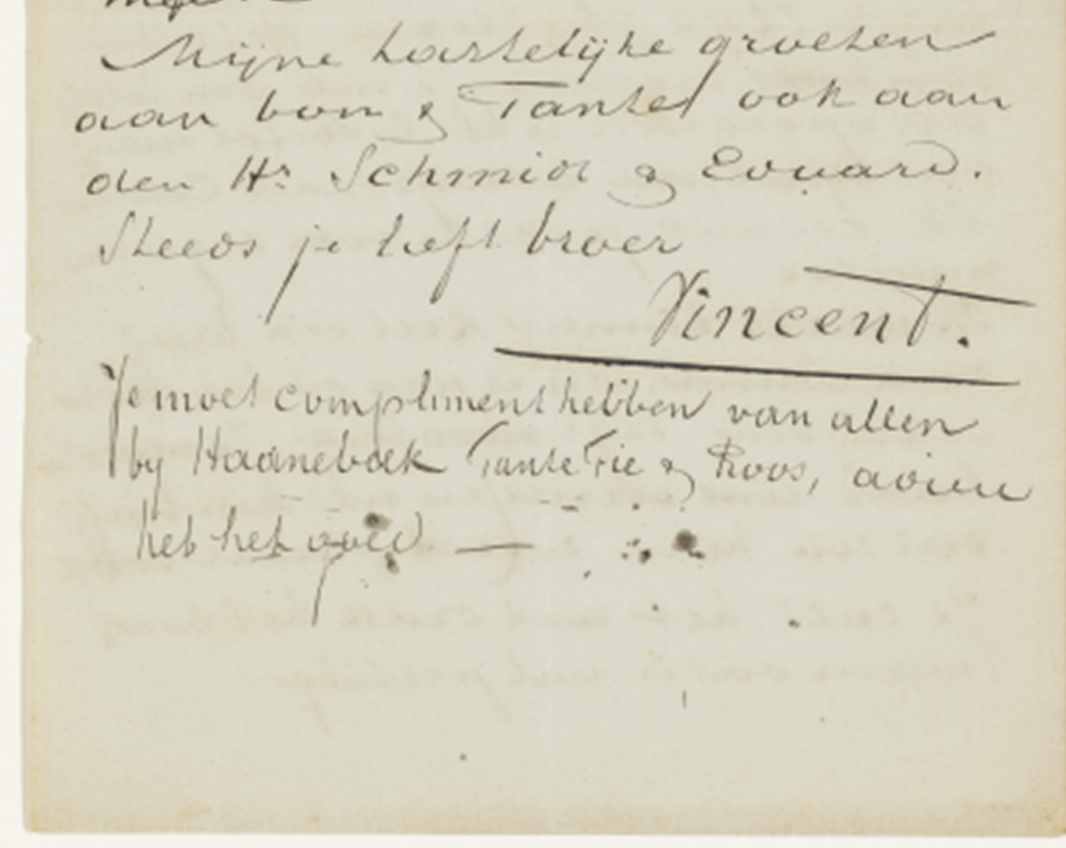 Mijne hartelijke groeten
aan Oom & Tante, ook aan
den Hr Schmidt & Eduard.
Steeds je liefh broer
Vincent.
Je moet compliment hebben van allen
by Haanebeek Tante Fie & Roos, adieu
heb het goed —